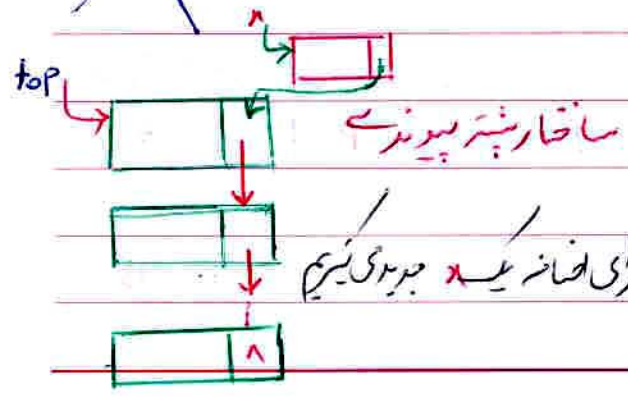 x
top
ساختار پشته پیوندی
اضافه یک x جدید می‌گیریم